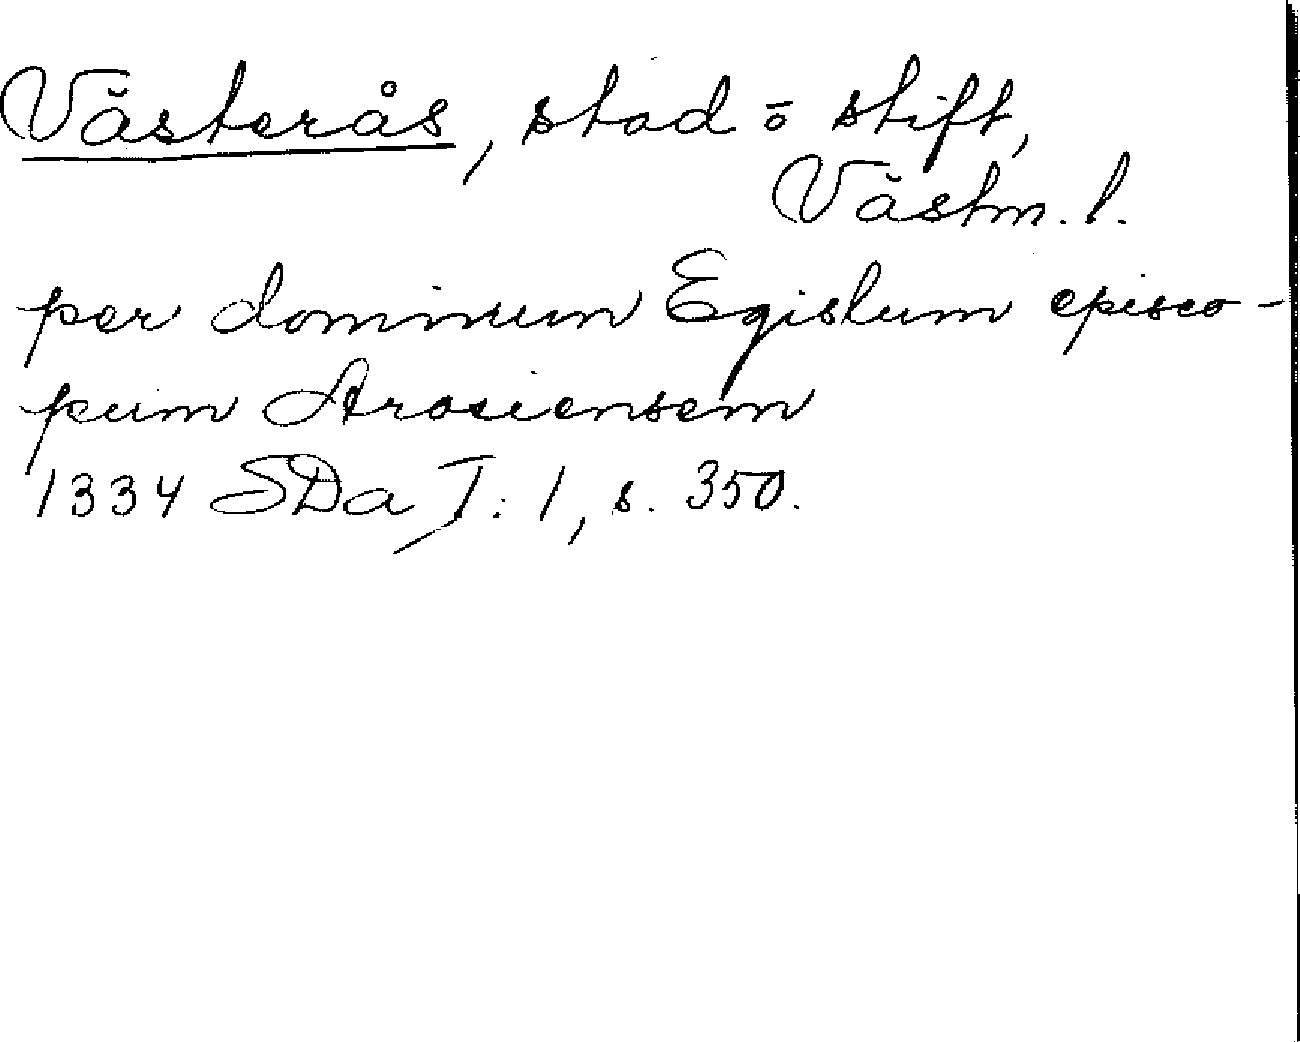 Västerås, stad o stift,
Västm. l.
per dominum Egislum episco-
pum Arosiensem
1334 SDa I: 1, s. 350.